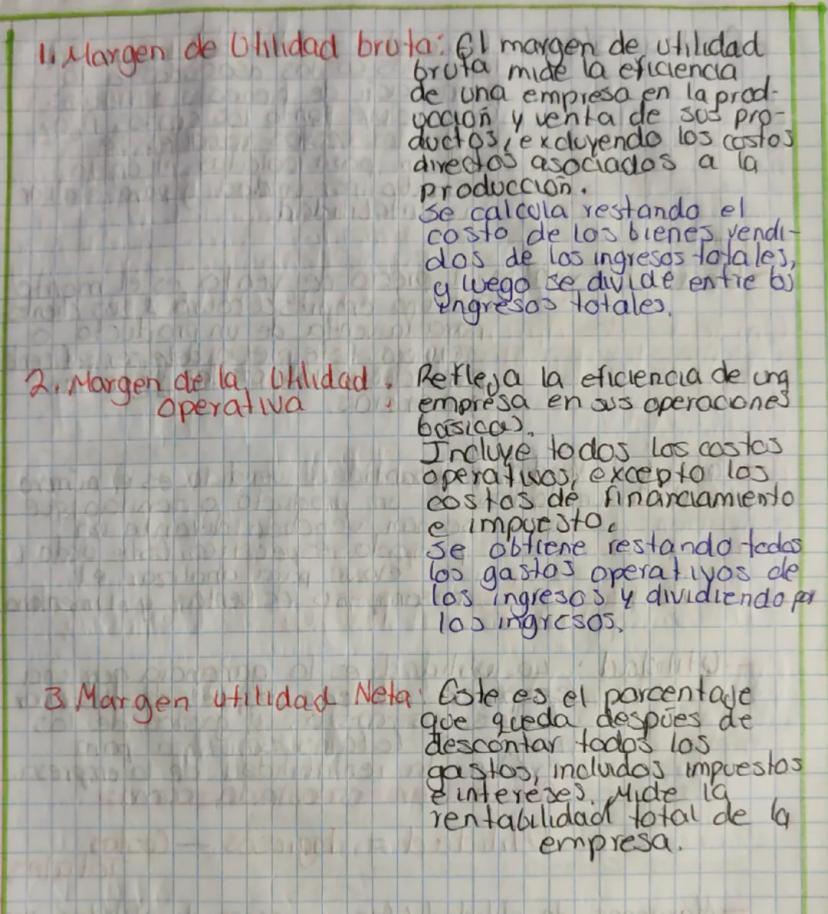 1. Margen de Utilidad bruta: El margen de utilidad
bruta mide la eficiencia
de una empresa en la prod-
ucción y venta de sus pro-
ductos, excluyendo los costos
directos asociados a la
producción.
Se calcula restando el
costo de los bienes vendi-
dos de los ingresos totales,
y luego se divide entre los
ingresos totales.
2. Margen de la Utilidad : Refleja la eficiencia de una
operativa empresa en sus operaciones
básicas.
Incluye todos los costos
operativos, excepto los
costos de financiamiento
e impuesto.
Se obtiene restando todos
los gastos operativos de
los ingresos y dividiendo por
los ingresos.
3 Margen utilidad Neta: Este es el porcentaje
que queda después de
descontar todos los
gastos, incluidos impuestos
e intereses. Mide la
rentabilidad total de la
empresa.